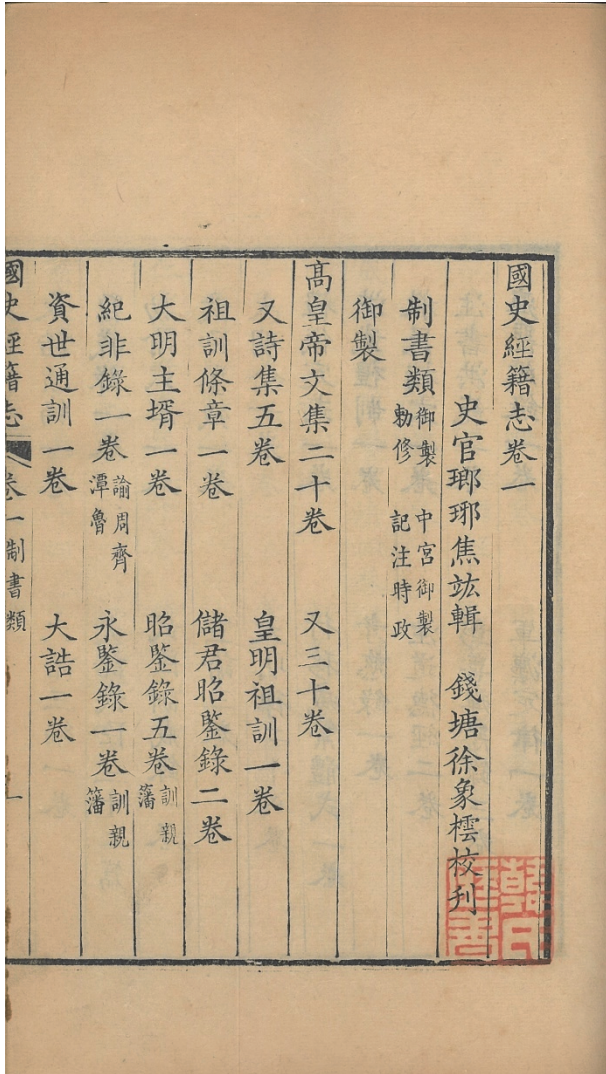 國史經籍志卷一
史官瑯琊焦竑輯 錢塘徐象橒校刊
制書類 御製 中宮御製
勑修 記注時政
御製
高皇帝文集二十卷 又三十卷
又詩集五卷 皇明祖訓一卷
祖訓條章一卷 儲君昭鑒錄二卷
大明主壻一卷 昭鑒錄五卷 訓親藩
紀非錄一卷 諭周齊潭魯 永鑒錄一卷 訓親藩
資世通訓一卷 大誥一卷
國史經籍志 卷一制書類 一